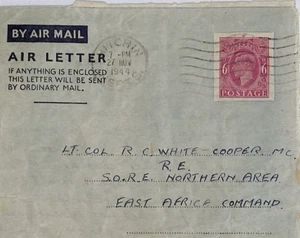 BY AIR MAIL
AIR LETTER
IF ANYTHING IS ENCLOSED
THIS LETTER WILL BE SENT
BY ORDINARY MAIL.
1944
6 6
POSTAGE
LT COL R. C. WHITE COOPER. MC.
R.E.
S.O.R.E. NORTHERN AREA
EAST AFRICA COMMAND.